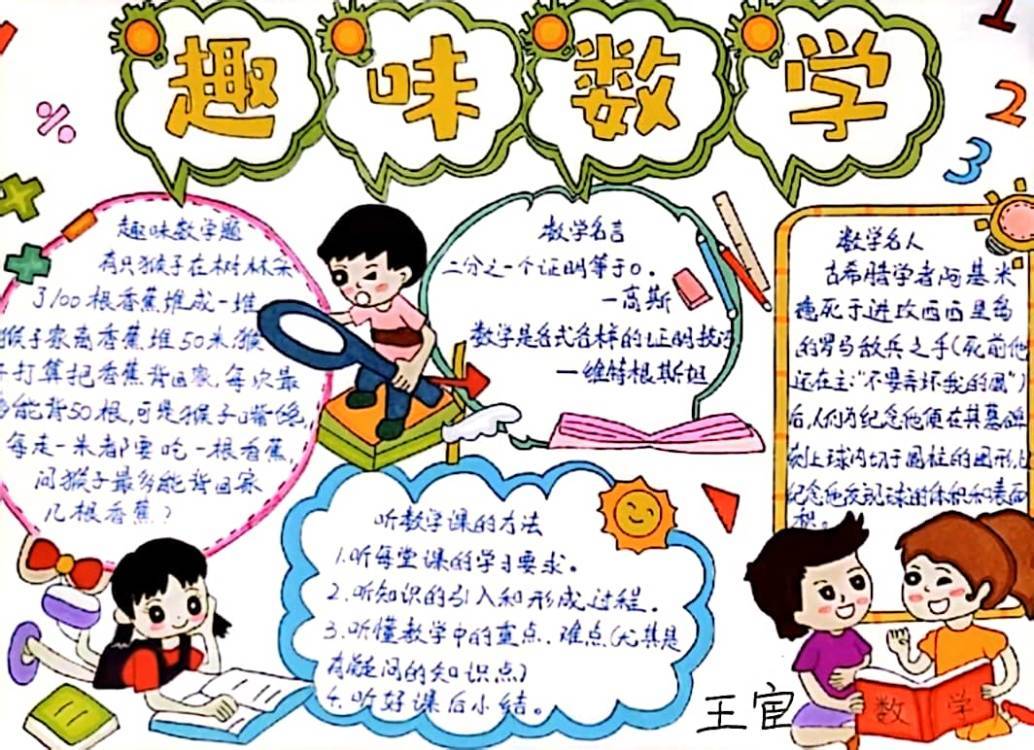 趣味数学
1
2
3
%
趣味数学题
有只猴子在树林采
了100根香蕉堆成一堆
猴子家离香蕉堆50米,猴
子打算把香蕉背回家,每次最
多能背50根,可是猴子嘴馋,
每走一米都要吃一根香蕉,
问猴子最多能背回家
几根香蕉?
数学名言
二分之一个证明等于0。
—高斯
数学是各式各样的证明技巧
—维特根斯坦
数学名人
古希腊学者阿基米
德死于进攻西西里岛
的罗马敌兵之手(死前他
还在主:“不要弄坏我的圆”)
后,人们为纪念他便在其墓碑
刻上球内切于圆柱的图形,以
纪念他发现球的体积和表面
积。
听数学课的方法
1.听每堂课的学习要求。
2.听知识的引入和形成过程.
3.听懂教学中的重点、难点(尤其是
有疑问的知识点)
4.听好课后小结。
数学